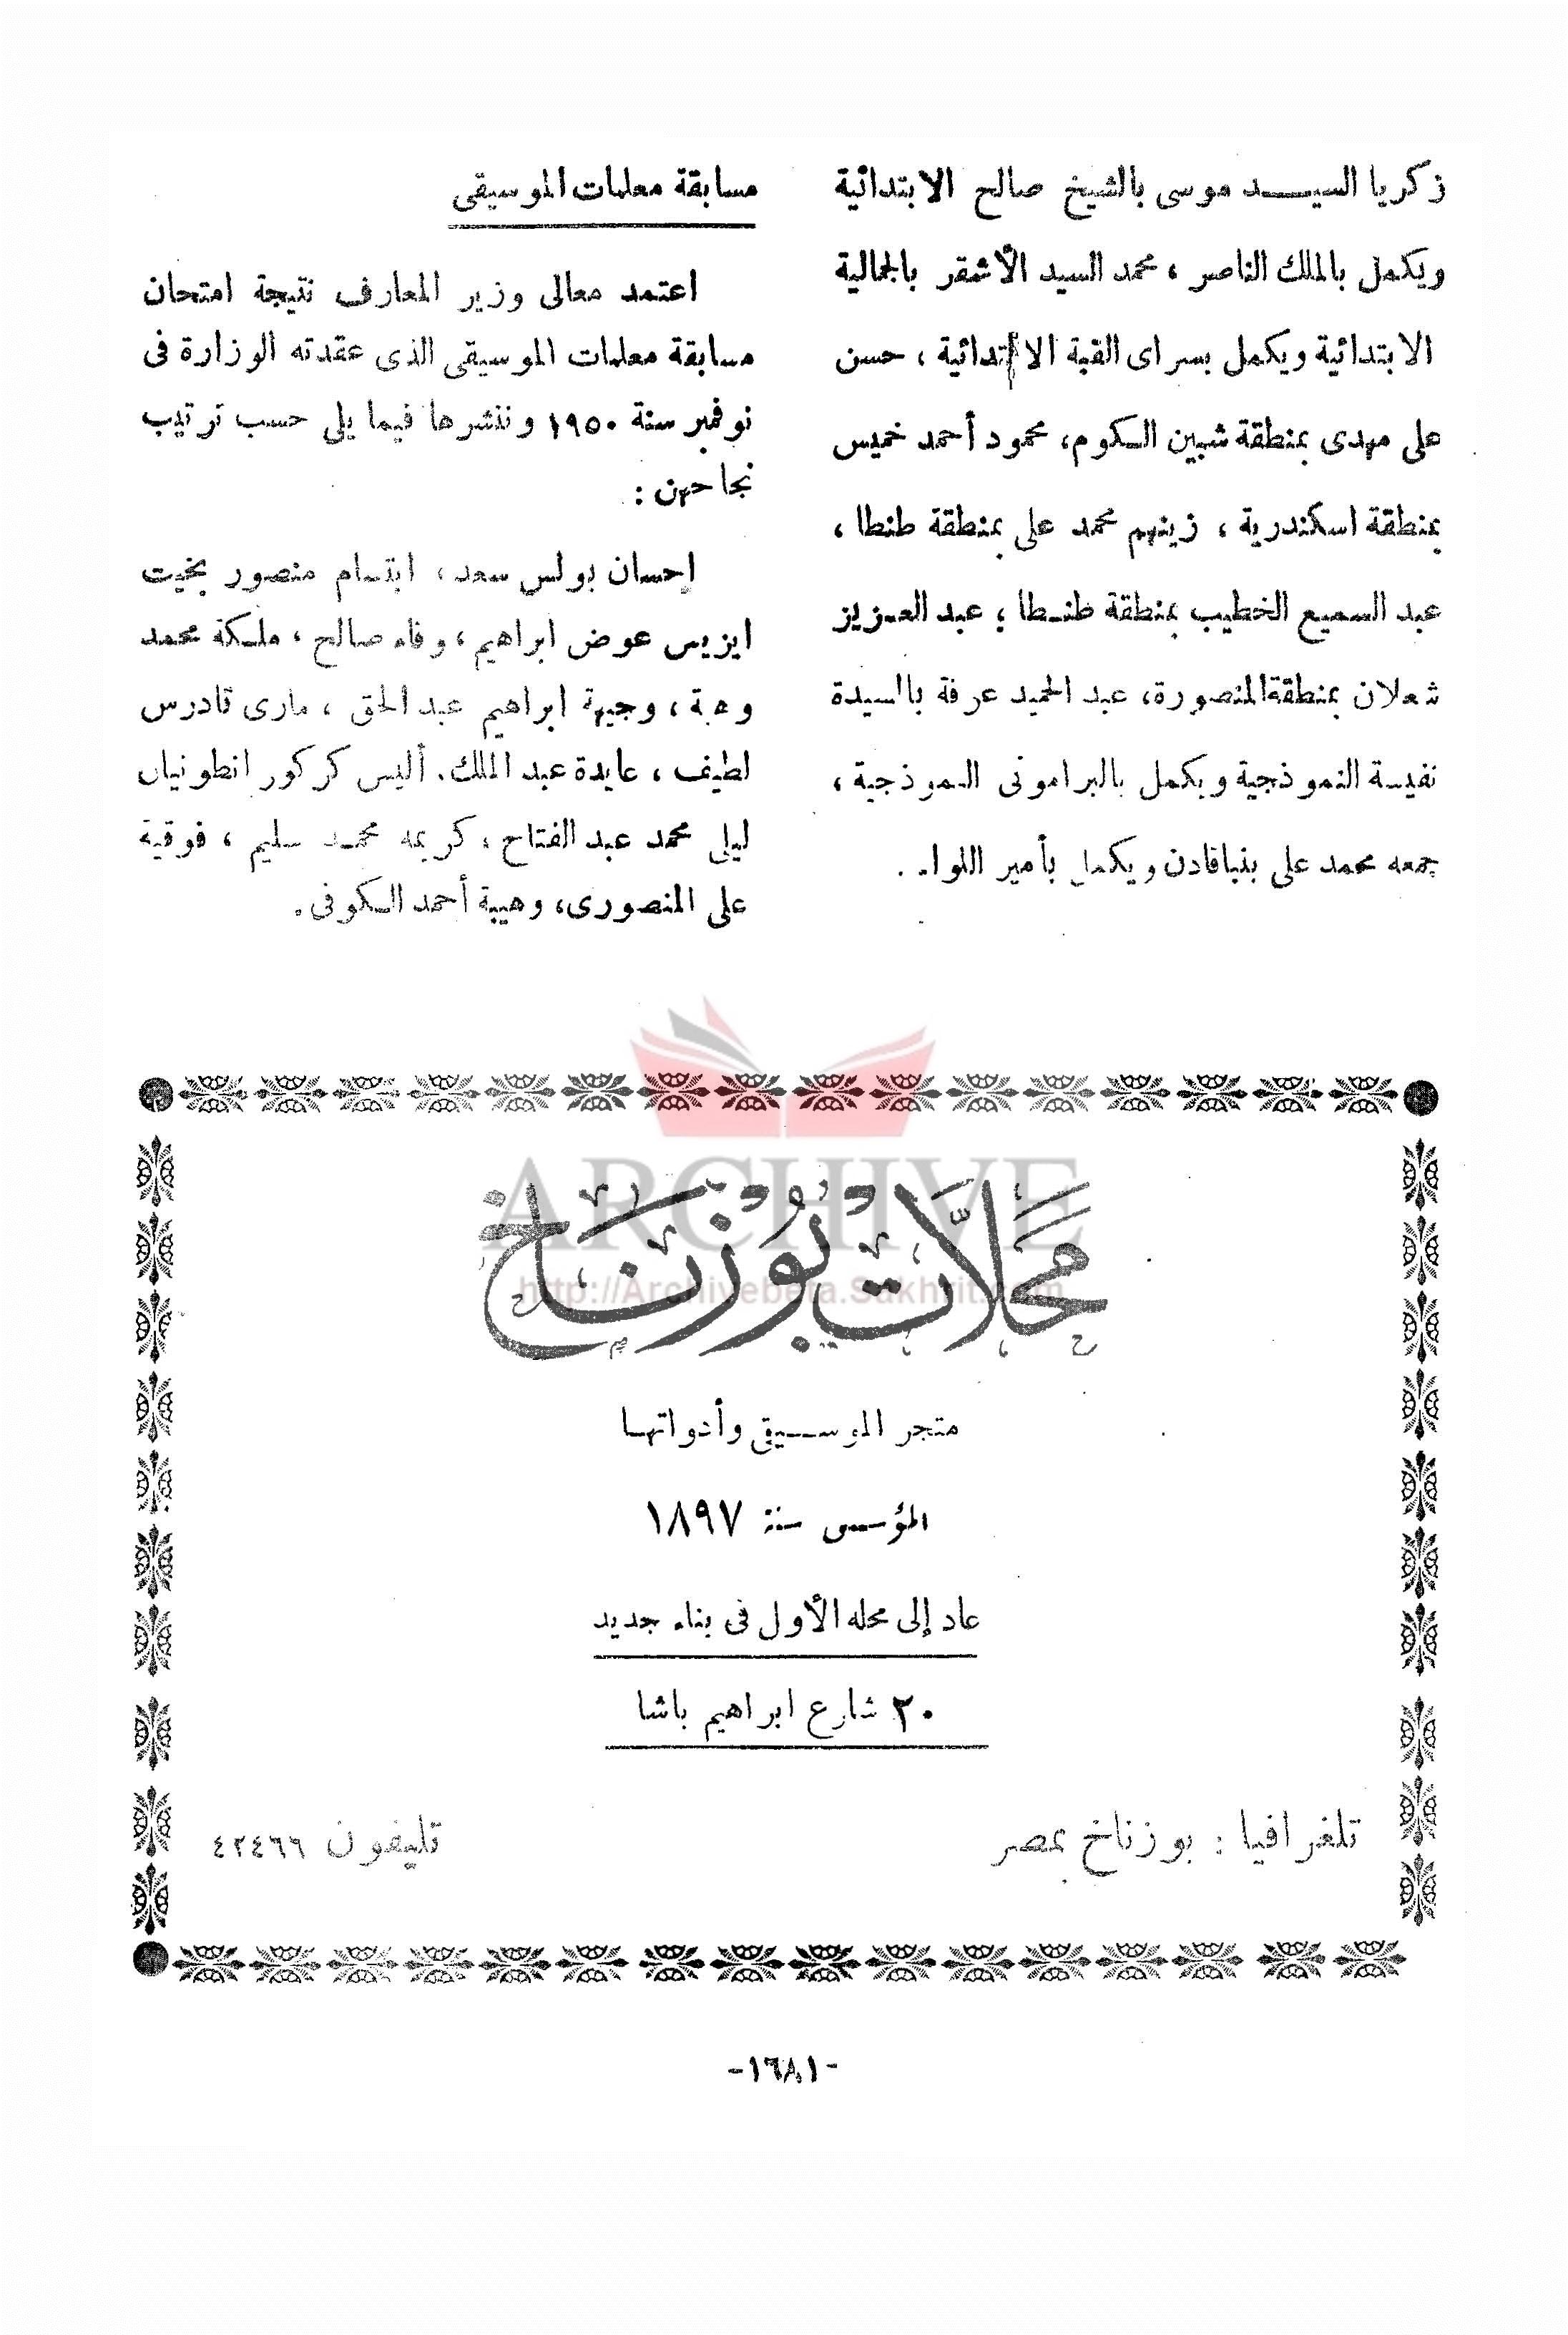 زكريا السيد موسى بالشيخ صالح الابتدائية
ويكمل بالملك الناصر ، محمد السيد الأشقر بالجمالية
الابتدائية ويكمل بسراى القبة الابتدائية ، حسن
على مهدى بمنطقة شبين الكوم، محمود أحمد خميس
بمنطقة اسكندرية ، زينهم محمد على بمنطقة طنطا ،
عبد السميع الخطيب بمنطقة طنطا ، عبد العزيز
شعلان بمنطقة المنصورة، عبد الحميد عرفة بالسيدة
نفيسة النموذجية ويكمل بالبرامونى النموذجية ،
جمعه محمد على بنباقادن ويكمل بأمير اللواء .
مسابقة معلمات الموسيقى
اعتمد معالى وزير المعارف نتيجة امتحان
مسابقة معلمات الموسيقى الذى عقدته الوزارة فى
نوفمبر سنة ١٩٥٠ وننشرها فيما يلى حسب ترتيب
نجاحهن :
إحسان بولس سعد ، ابتسام منصور بخيت
ايزيس عوض ابراهيم ، وفاء صالح ، ملكة محمد
وهبة ، وجيهة ابراهيم عبد الحق ، مارى تادرس
لطيف ، عايدة عبد الملك. أليس كركور انطونيان
ليلى محمد عبد الفتاح ، كريمه محمد سليم ، فوقية
على المنصورى، وهيبة أحمد الكوفى.
ARCHIVE
http://Archivebeta.Sakhrit.com
محلات بوزناخ
متجر الموسيقى وأدواتها
المؤسس سنة ١٨٩٧
عاد إلى محله الأول فى بناء جديد
٢٠ شارع ابراهيم باشا
تلغرافيا : بوزناخ بمصر
تليفون ٤٢٤٦٦
-١٦٨١-